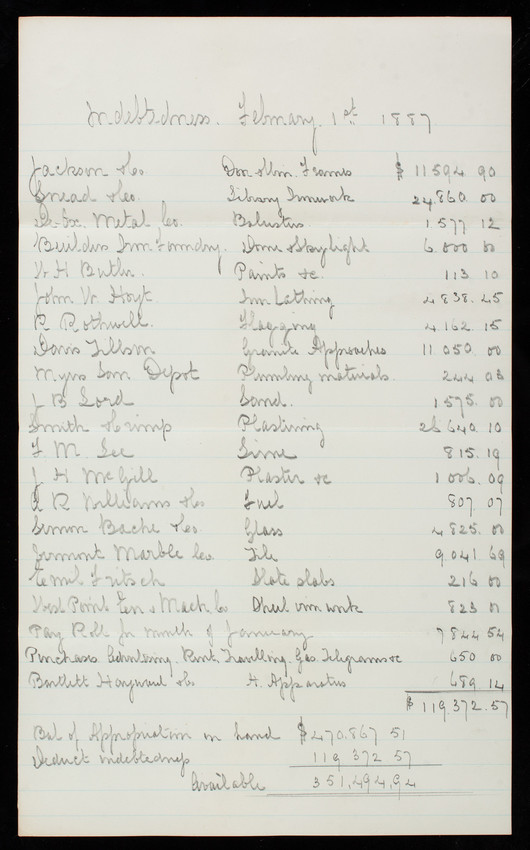 Indebtedness. February. 1st. 1887
Jackson & Co Door & Win. Frames $ 11594 90
Snead & Co. Library Ironwork 24,860 00
De-Ox. Metal Co. Balusters 1577 12
Builders Iron Foundry. Dome & Skylight 6.000 00
W H Butler. Paints &c. 113 10
John W. Hoyt. Iron Lathing 4838.45
R Rothwell. Flagging 4162.15
Davis Tillson Granite Approaches 11.050 00
Myrs Son Depot Plumbing materials. 244 03
J B Lord Sand. 1575. 00
Smith & Crimp Plastering 26640.10
F. M. Lee Lime 815.19
J. H. McGill Plaster &c 1006.09
A R Williams & Co Fuel 807.07
Semon Bache & Co. Glass 4825.00
Vermont Marble Co. Tile 9.041 69
Emil Fritsch Slate slabs 216 00
West Point Fen & Mach Co Wheel iron work 823 00
Pay Roll for month of January 7844 54
Purchases. Advertising. Rent. Travelling. Gas. Telegrams &c 650 00
Bartlett Hayward & Co. H. Apparatus 689.14
$ 119,372.57
Bal of Appropriation on hand $ 470,867 51
Deduct indebtedness 119 372 57
Available 351,494,94